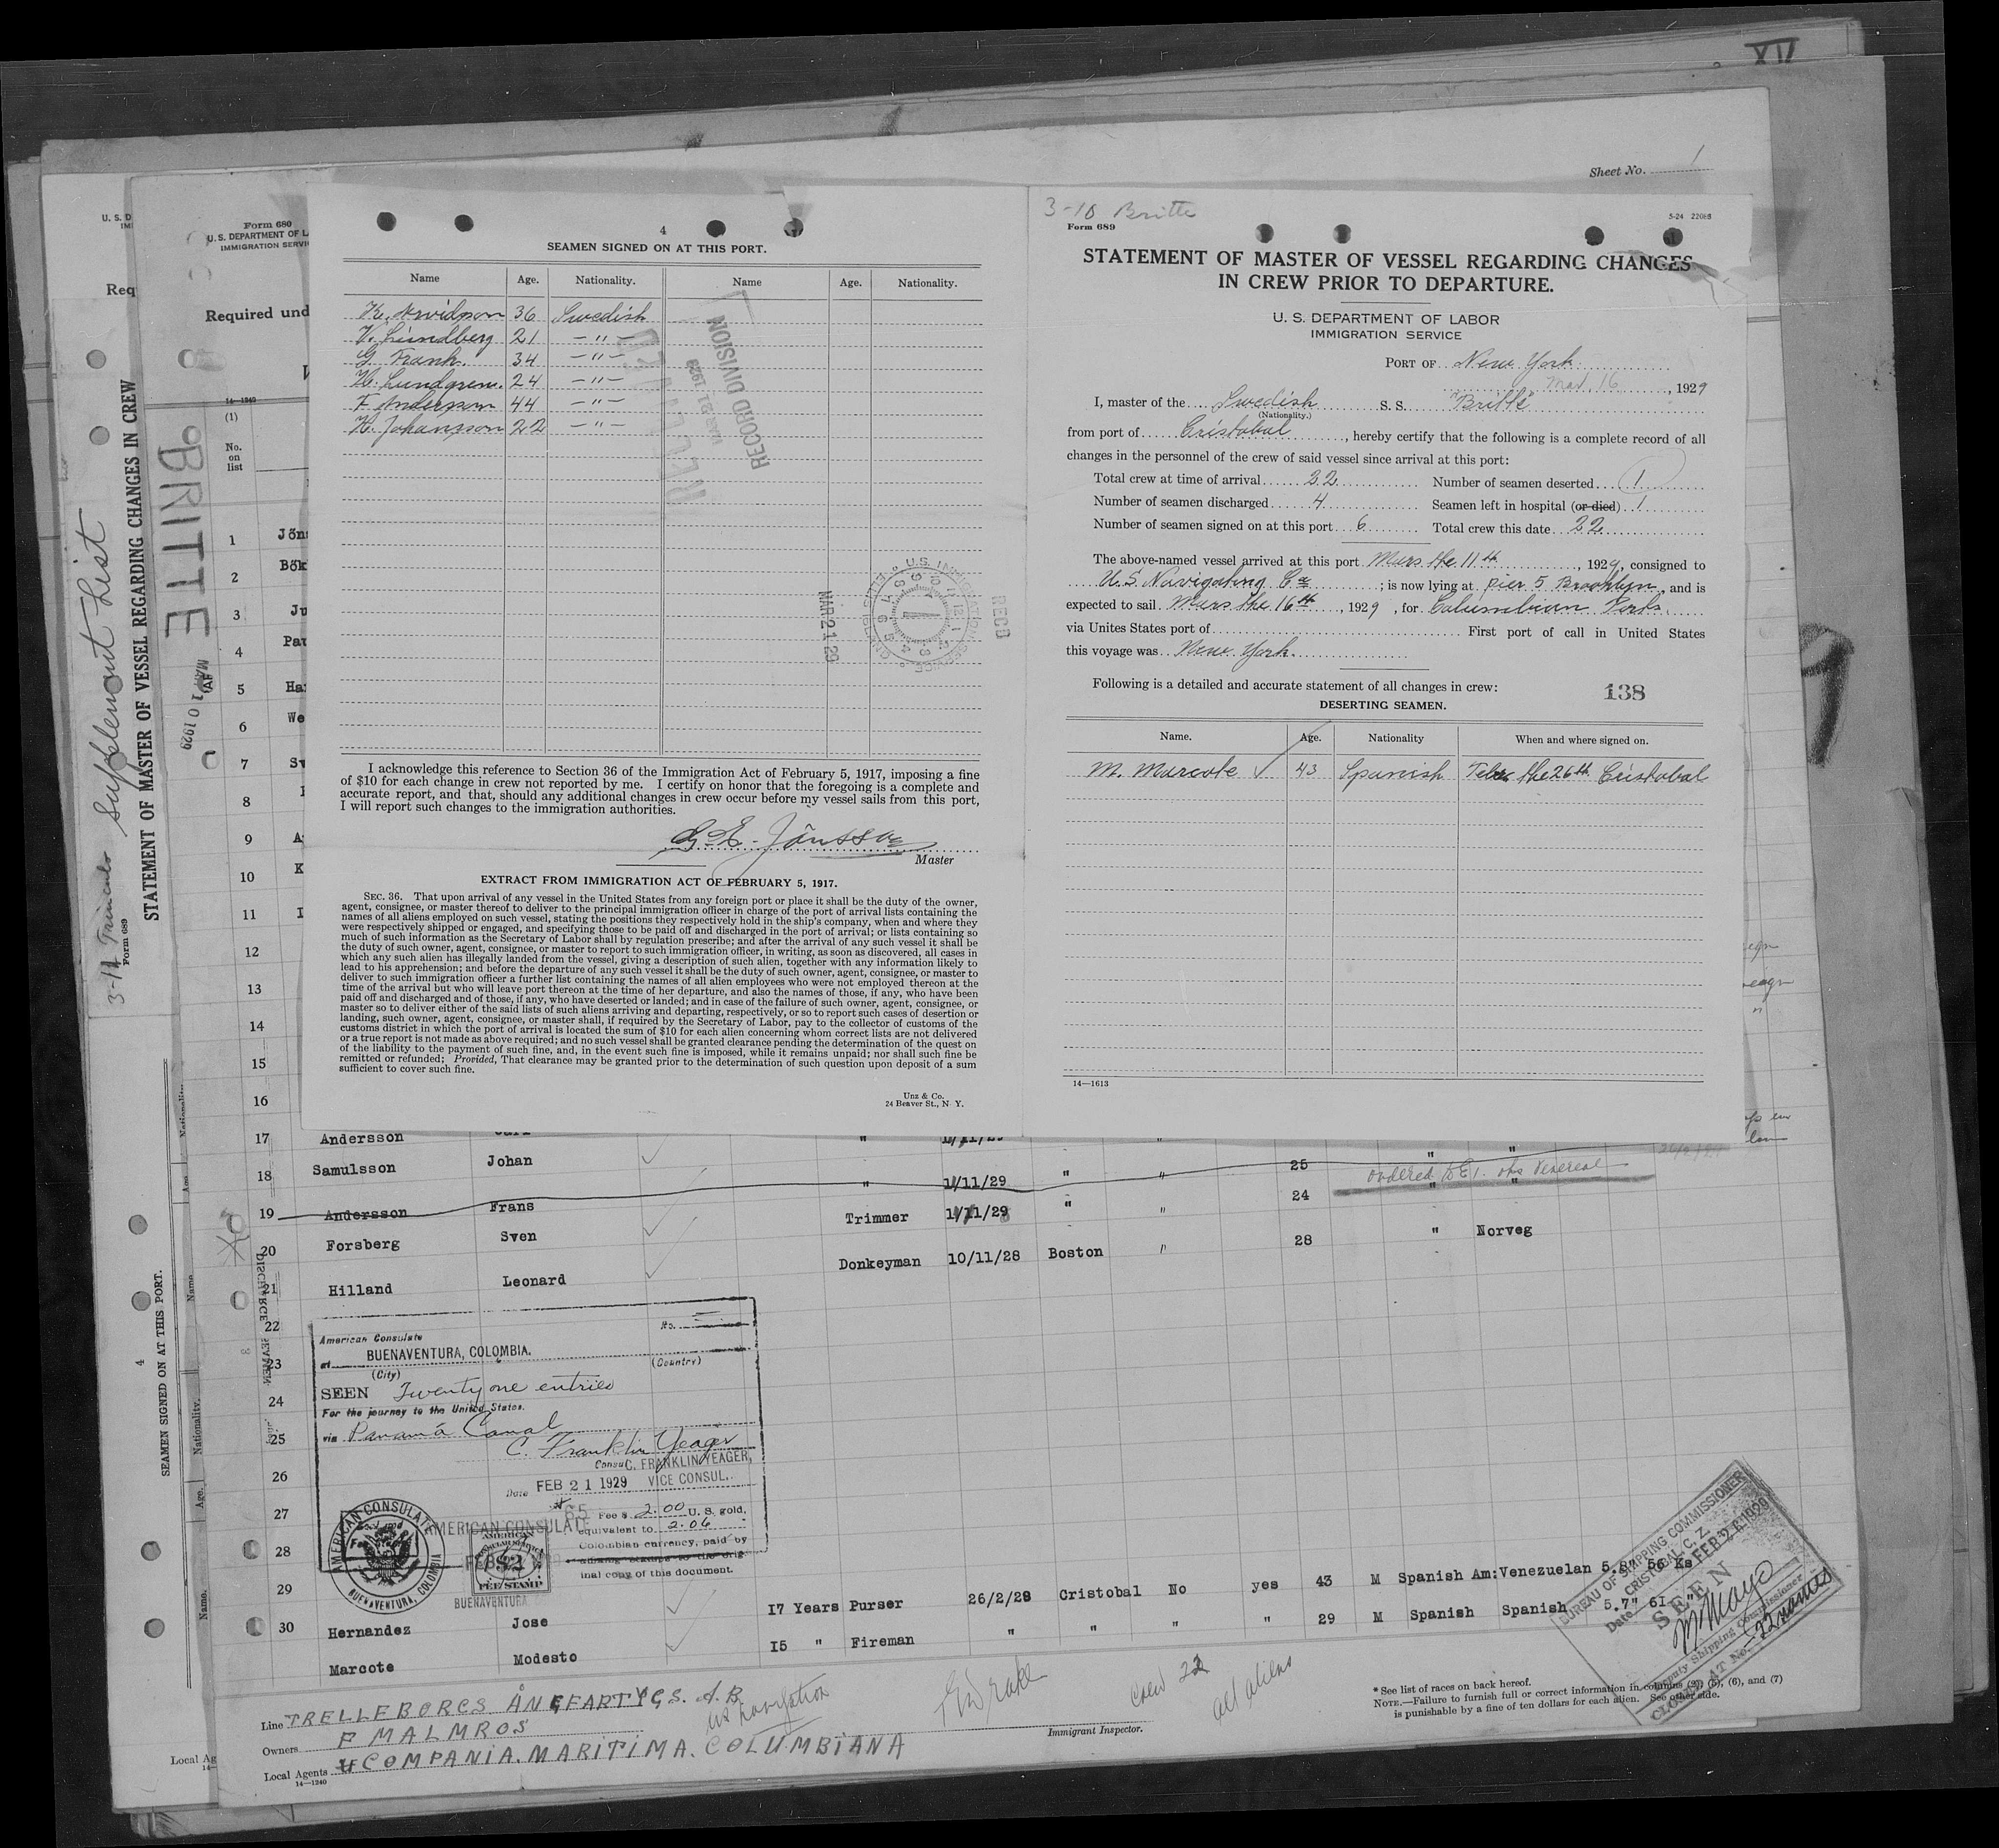 XII
Sheet No. 1
U. S. D
Form 680
U. S. DEPARTMENT OF L
IMMIGRATION SERVI
Req
Required und
14—1240
(1)
No.
on
list
3-11 Trimmer Supplement List
Form 689
STATEMENT OF MASTER OF VESSEL REGARDING CHANGES IN CREW
BRITTE
MAR 10 1929
4
SEAMEN SIGNED ON AT THIS PORT.
Name.
Age.
Nationality.
Name.
4
SEAMEN SIGNED ON AT THIS PORT.
Name Age. Nationality. Name Age. Nationality.
K. Arvidson 36 Swedish
V. Lindberg 21 — " —
G Frank. 34 — " —
H. Lundgren. 24 — " —
F Anderson 44 — " —
K. Johansson 22 — " —
RECEIVED
MAR 21 1929
RECORD DIVISION
REC'D
MAR 21 29
U.S. IMMIGRATION SERVICE
ELLIS ISLAND
I acknowledge this reference to Section 36 of the Immigration Act of February 5, 1917, imposing a fine
of $10 for each change in crew not reported by me. I certify on honor that the foregoing is a complete and
accurate report, and that, should any additional changes in crew occur before my vessel sails from this port,
I will report such changes to the immigration authorities.
G. E. Jönsson
Master
EXTRACT FROM IMMIGRATION ACT OF FEBRUARY 5, 1917.
SEC. 36. That upon arrival of any vessel in the United States from any foreign port or place it shall be the duty of the owner,
agent, consignee, or master thereof to deliver to the principal immigration officer in charge of the port of arrival lists containing the
names of all aliens employed on such vessel, stating the positions they respectively hold in the ship's company, when and where they
were respectively shipped or engaged, and specifying those to be paid off and discharged in the port of arrival; or lists containing so
much of such information as the Secretary of Labor shall by regulation prescribe; and after the arrival of any such vessel it shall be
the duty of such owner, agent, consignee, or master to report to such immigration officer, in writing, as soon as discovered, all cases in
which any such alien has illegally landed from the vessel, giving a description of such alien, together with any information likely to
lead to his apprehension; and before the departure of any such vessel it shall be the duty of such owner, agent, consignee, or master to
deliver to such immigration officer a further list containing the names of all alien employees who were not employed thereon at the
time of the arrival but who will leave port thereon at the time of her departure, and also the names of those, if any, who have been
paid off and discharged and of those, if any, who have deserted or landed; and in case of the failure of such owner, agent, consignee, or
master so to deliver either of the said lists of such aliens arriving and departing, respectively, or so to report such cases of desertion or
landing, such owner, agent, consignee, or master shall, if required by the Secretary of Labor, pay to the collector of customs of the
customs district in which the port of arrival is located the sum of $10 for each alien concerning whom correct lists are not delivered
or a true report is not made as above required; and no such vessel shall be granted clearance pending the determination of the quest on
of the liability to the payment of such fine, and, in the event such fine is imposed, while it remains unpaid; nor shall such fine be
remitted or refunded; Provided, That clearance may be granted prior to the determination of such question upon deposit of a sum
sufficient to cover such fine.
Unz & Co.
24 Beaver St., N. Y.
3-10 Britte
Form 689
5-24 22068
STATEMENT OF MASTER OF VESSEL REGARDING CHANGES
IN CREW PRIOR TO DEPARTURE.
U. S. DEPARTMENT OF LABOR
IMMIGRATION SERVICE
PORT OF New York
Mar. 16, 1929
I, master of the Swedish S. S. "Britte"
(Nationality.)
from port of Cristobal, hereby certify that the following is a complete record of all
changes in the personnel of the crew of said vessel since arrival at this port:
Total crew at time of arrival 22 Number of seamen deserted 1
Number of seamen discharged 4 Seamen left in hospital (or died) 1
Number of seamen signed on at this port 6 Total crew this date 22
The above-named vessel arrived at this port Mars the 11th, 1929, consigned to
U.S. Navigating Co; is now lying at pier 5 Brooklyn, and is
expected to sail Mars the 16th, 1929, for Columbian Ports.
via Unites States port of First port of call in United States
this voyage was New York.
Following is a detailed and accurate statement of all changes in crew:
138
DESERTING SEAMEN.
Name. Age. Nationality When and where signed on.
M. Marcote ✓ 43 Spanish Febr the 26th Cristobal
14—1613
1 Jöns
2 Bök
3 Ju
4 Pau
5 Ha
6 We
7 Sv
8
9 A
10 K
11 I
12
13
14
15
16
17 Andersson Carl " 1/11/29 "
18 Samulsson Johan " 1/11/29 " " 25 " "
19 Andersson Frans Trimmer 1/11/29 " " 24 " "
ordered to E I. obs Venereal
20 Forsberg Sven Donkeyman 10/11/28 Boston " 28 " Norveg
21 Hilland Leonard
22
23
24
25
26
27
28
29
30
American Consulate
No.
at BUENAVENTURA, COLOMBIA.
(City) (Country)
SEEN Twenty one entries
For the journey to the United States.
via Panamá Canal
C. Franklin Yeager
Consul C. FRANKLIN YEAGER,
Date FEB 21 1929 VICE CONSUL.
65 Fee $ 2.00 U. S. gold,
equivalent to 2.06
Colombian currency, paid by
affixing stamps to the orig-
inal copy of this document.
AMERICAN CONSULATE
BUENAVENTURA, COLOMBIA
AMERICAN CONSULATE
AMERICAN
CONSULAR SERVICE
$2
FEE STAMP
BUENAVENTURA
Hernandez Jose 17 Years Purser 26/2/28 Cristobal No yes 43 M Spanish Am: Venezuelan 5.8" 56 Ks
Marcote Modesto 15 " Fireman " " " " 29 M Spanish Spanish 5.7" 61 "
BUREAU OF SHIPPING COMMISSIONER
CRISTOBAL, C. Z.
Date FEB 26 1929
SEEN
Deputy Shipping Commissioner
22 names
Line TRELLEBORGS ÅNGFARTYGS. A.B
us navigation
Owners F MALMROS
Local Agents COMPANIA. MARITIMA. COLUMBIANA
14—1240
Immigrant Inspector.
Crew 22
all aliens
* See list of races on back hereof.
NOTE.—Failure to furnish full or correct information in columns (3), (5), (6), and (7)
is punishable by a fine of ten dollars for each alien. See other side.
Local Ag